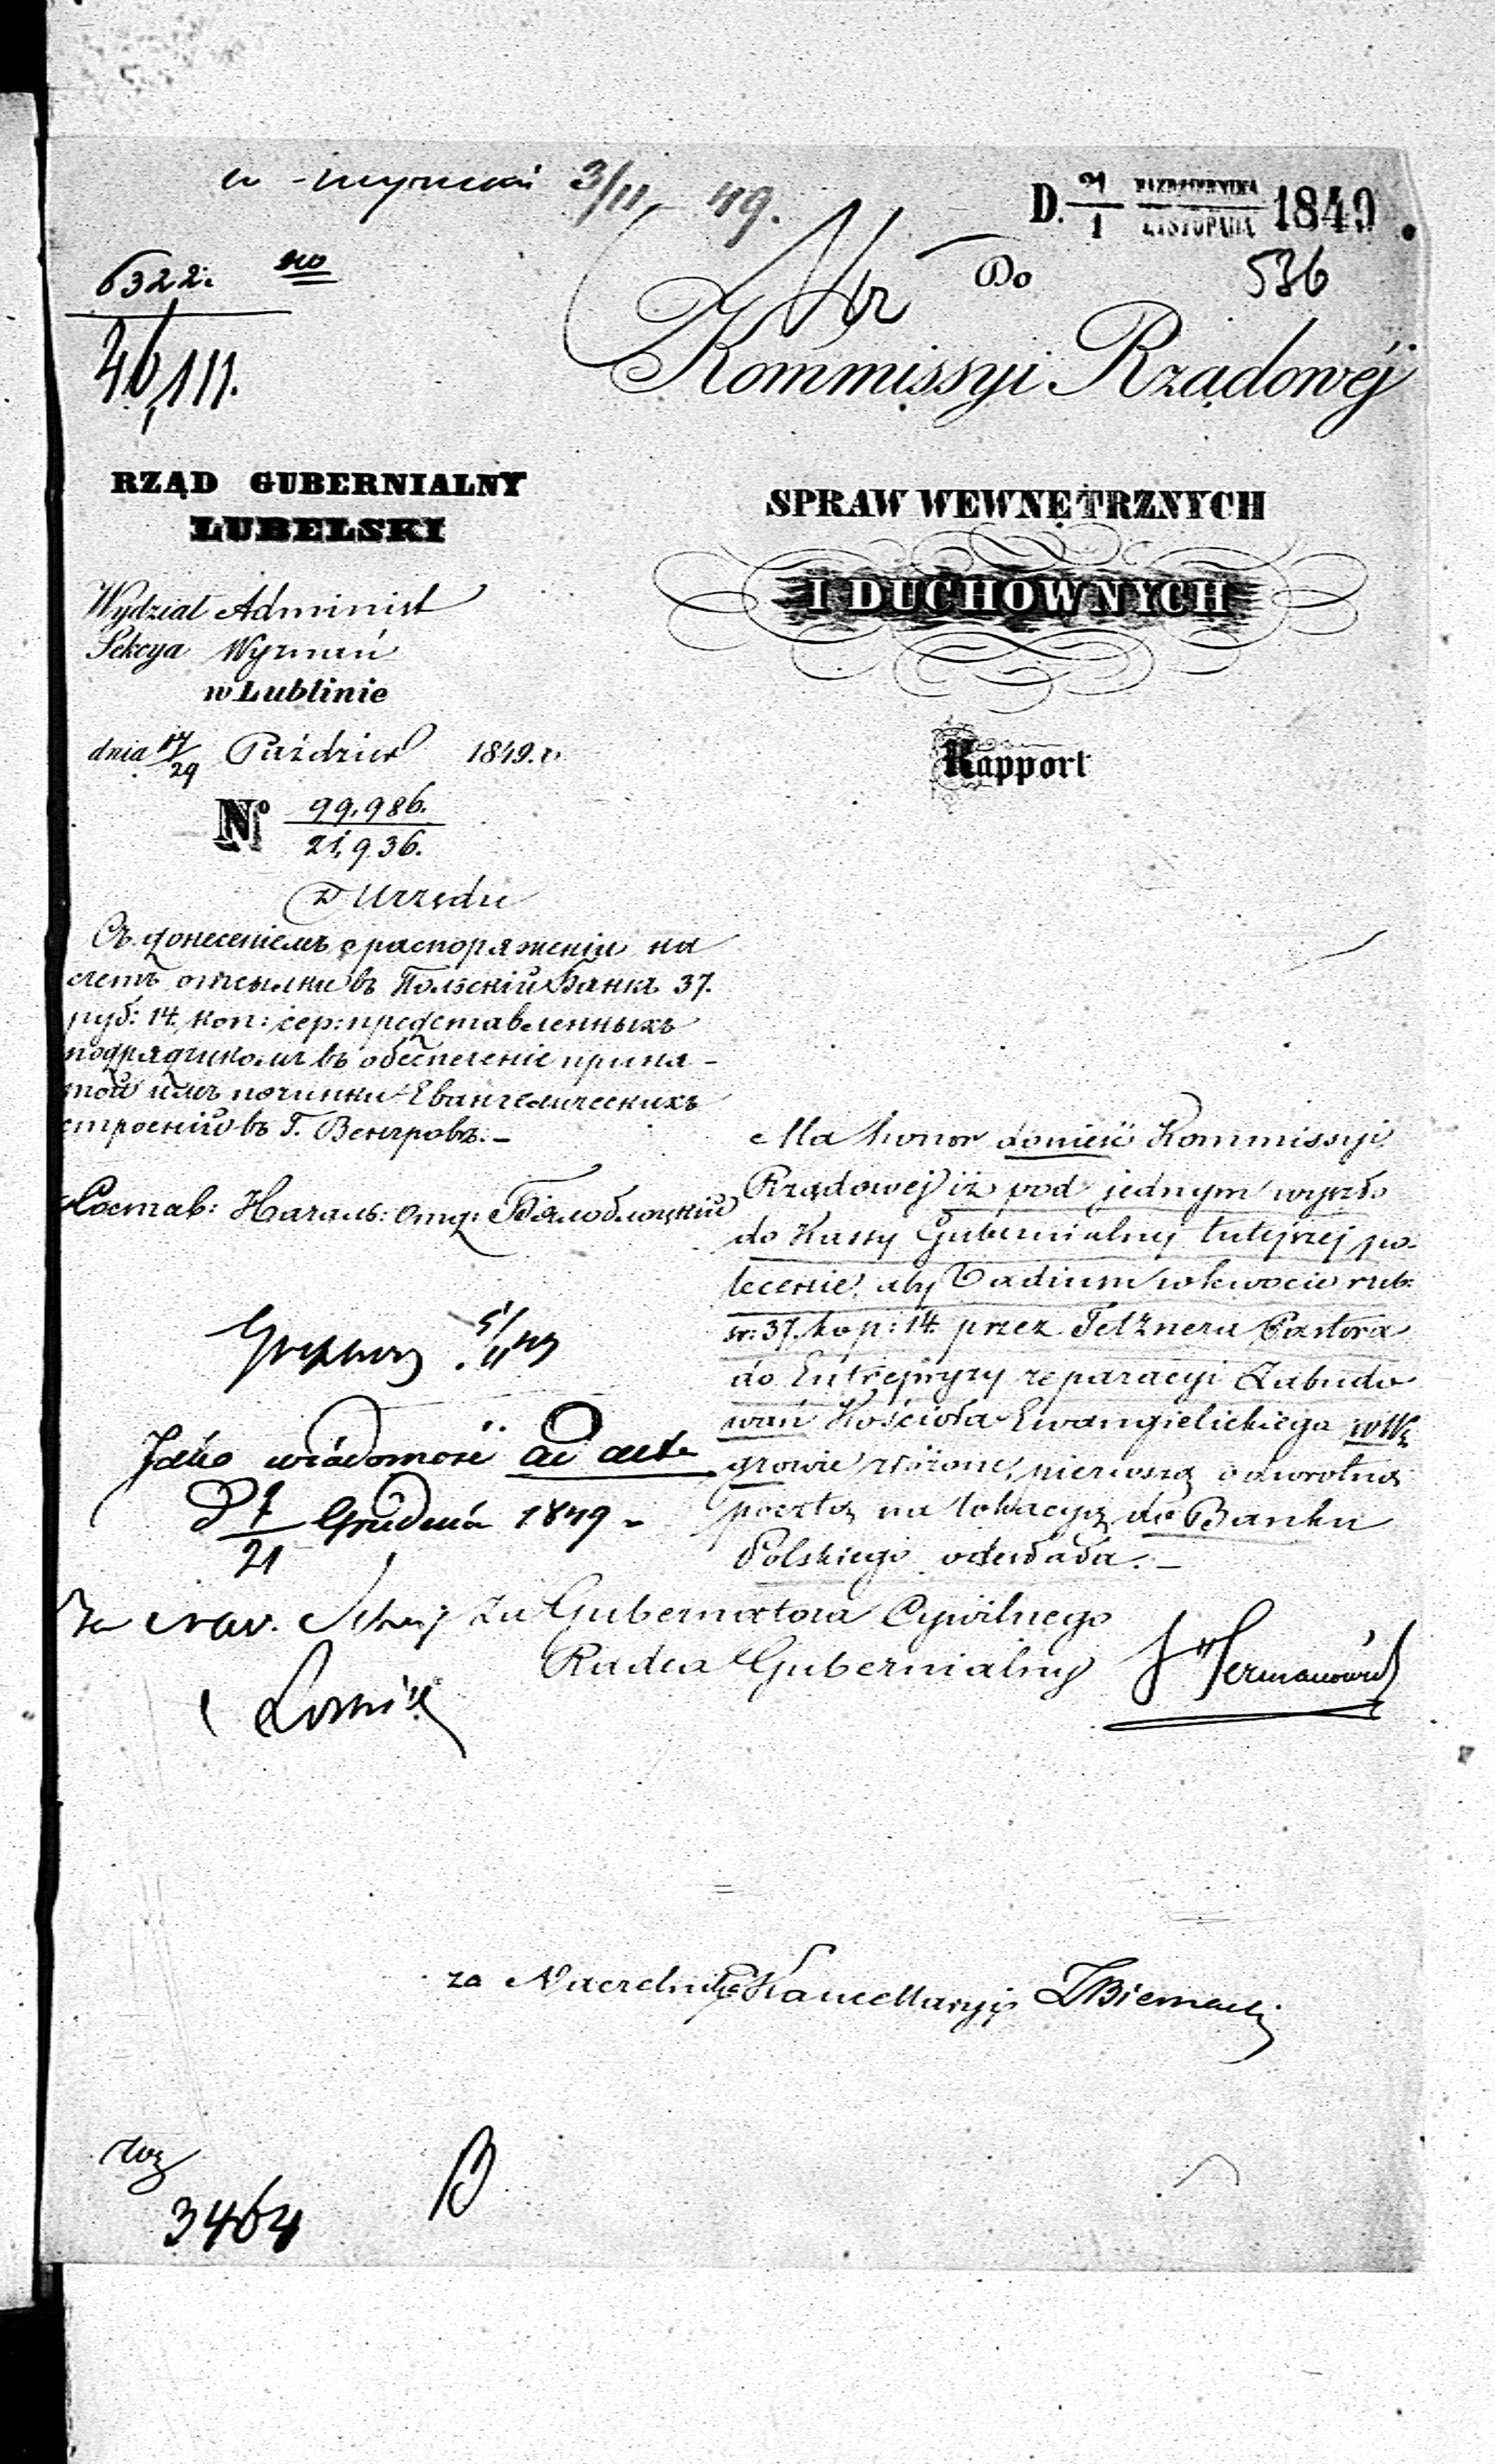 3/11 49.
D. 21/1 PAZDZIERNIKA/LISTOPADA 1849
6322.
536
Do
Kommissyi Rządowéj
RZĄD GUBERNIALNY
LUBELSKI
SPRAW WEWNĘTRZNYCH
I DUCHOWNYCH
Wydział Administ
Sekcya Wyznań
w Lublinie
dnia 17/29 Paździer 1849.r.
Rapport
Nº 99,986.
21,936.
Z Urzędu
Съ донесеніемъ о распоряженіи на
счетъ отсылки въ Польскій Банкъ 37.
руб: 14. коп: сер: представленныхъ
подрядчикомъ въ обеспеченіе приня-
той имъ починки Евангелическихъ
строеній въ Г. Венгровѣ.-
Состав: Началь: отд: Бѣлоблоцкій
Ma honor donieść Kommissyi
Rządowéj iż pod jednym wyszło
do Kassy Gubernialnej tutejszej po-
lecenie, aby Vadium w kwocie rub:
sr: 37. kop: 14. przez Tetznera Pastora
do Entrepryzy reparacyi Zabudo
wań Kościoła Ewangielickiego w Wę
growie złożone, pierwszą odwrotną
pocztą na lokacyą do Banku
Polskiego odesłała.-
Jako wiadomość ad acta
D 9/21 Grudnia 1849
Za Gubernatora Cywilnego
Radca Gubernialny
za Naczelnika Kancellaryi
3464